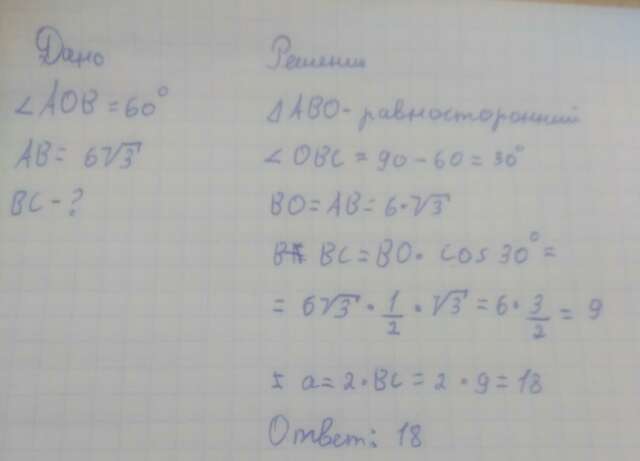 Дано
∠AOB = 60°
AB = 6√3
BC - ?
Решение
△ABO - равносторонний
∠OBC = 90 - 60 = 30°
BO = AB = 6·√3
BC = BO · cos 30° =
= 6√3 · 1/2 · √3 = 6 · 3/2 = 9
a = 2 · BC = 2 · 9 = 18
Ответ: 18